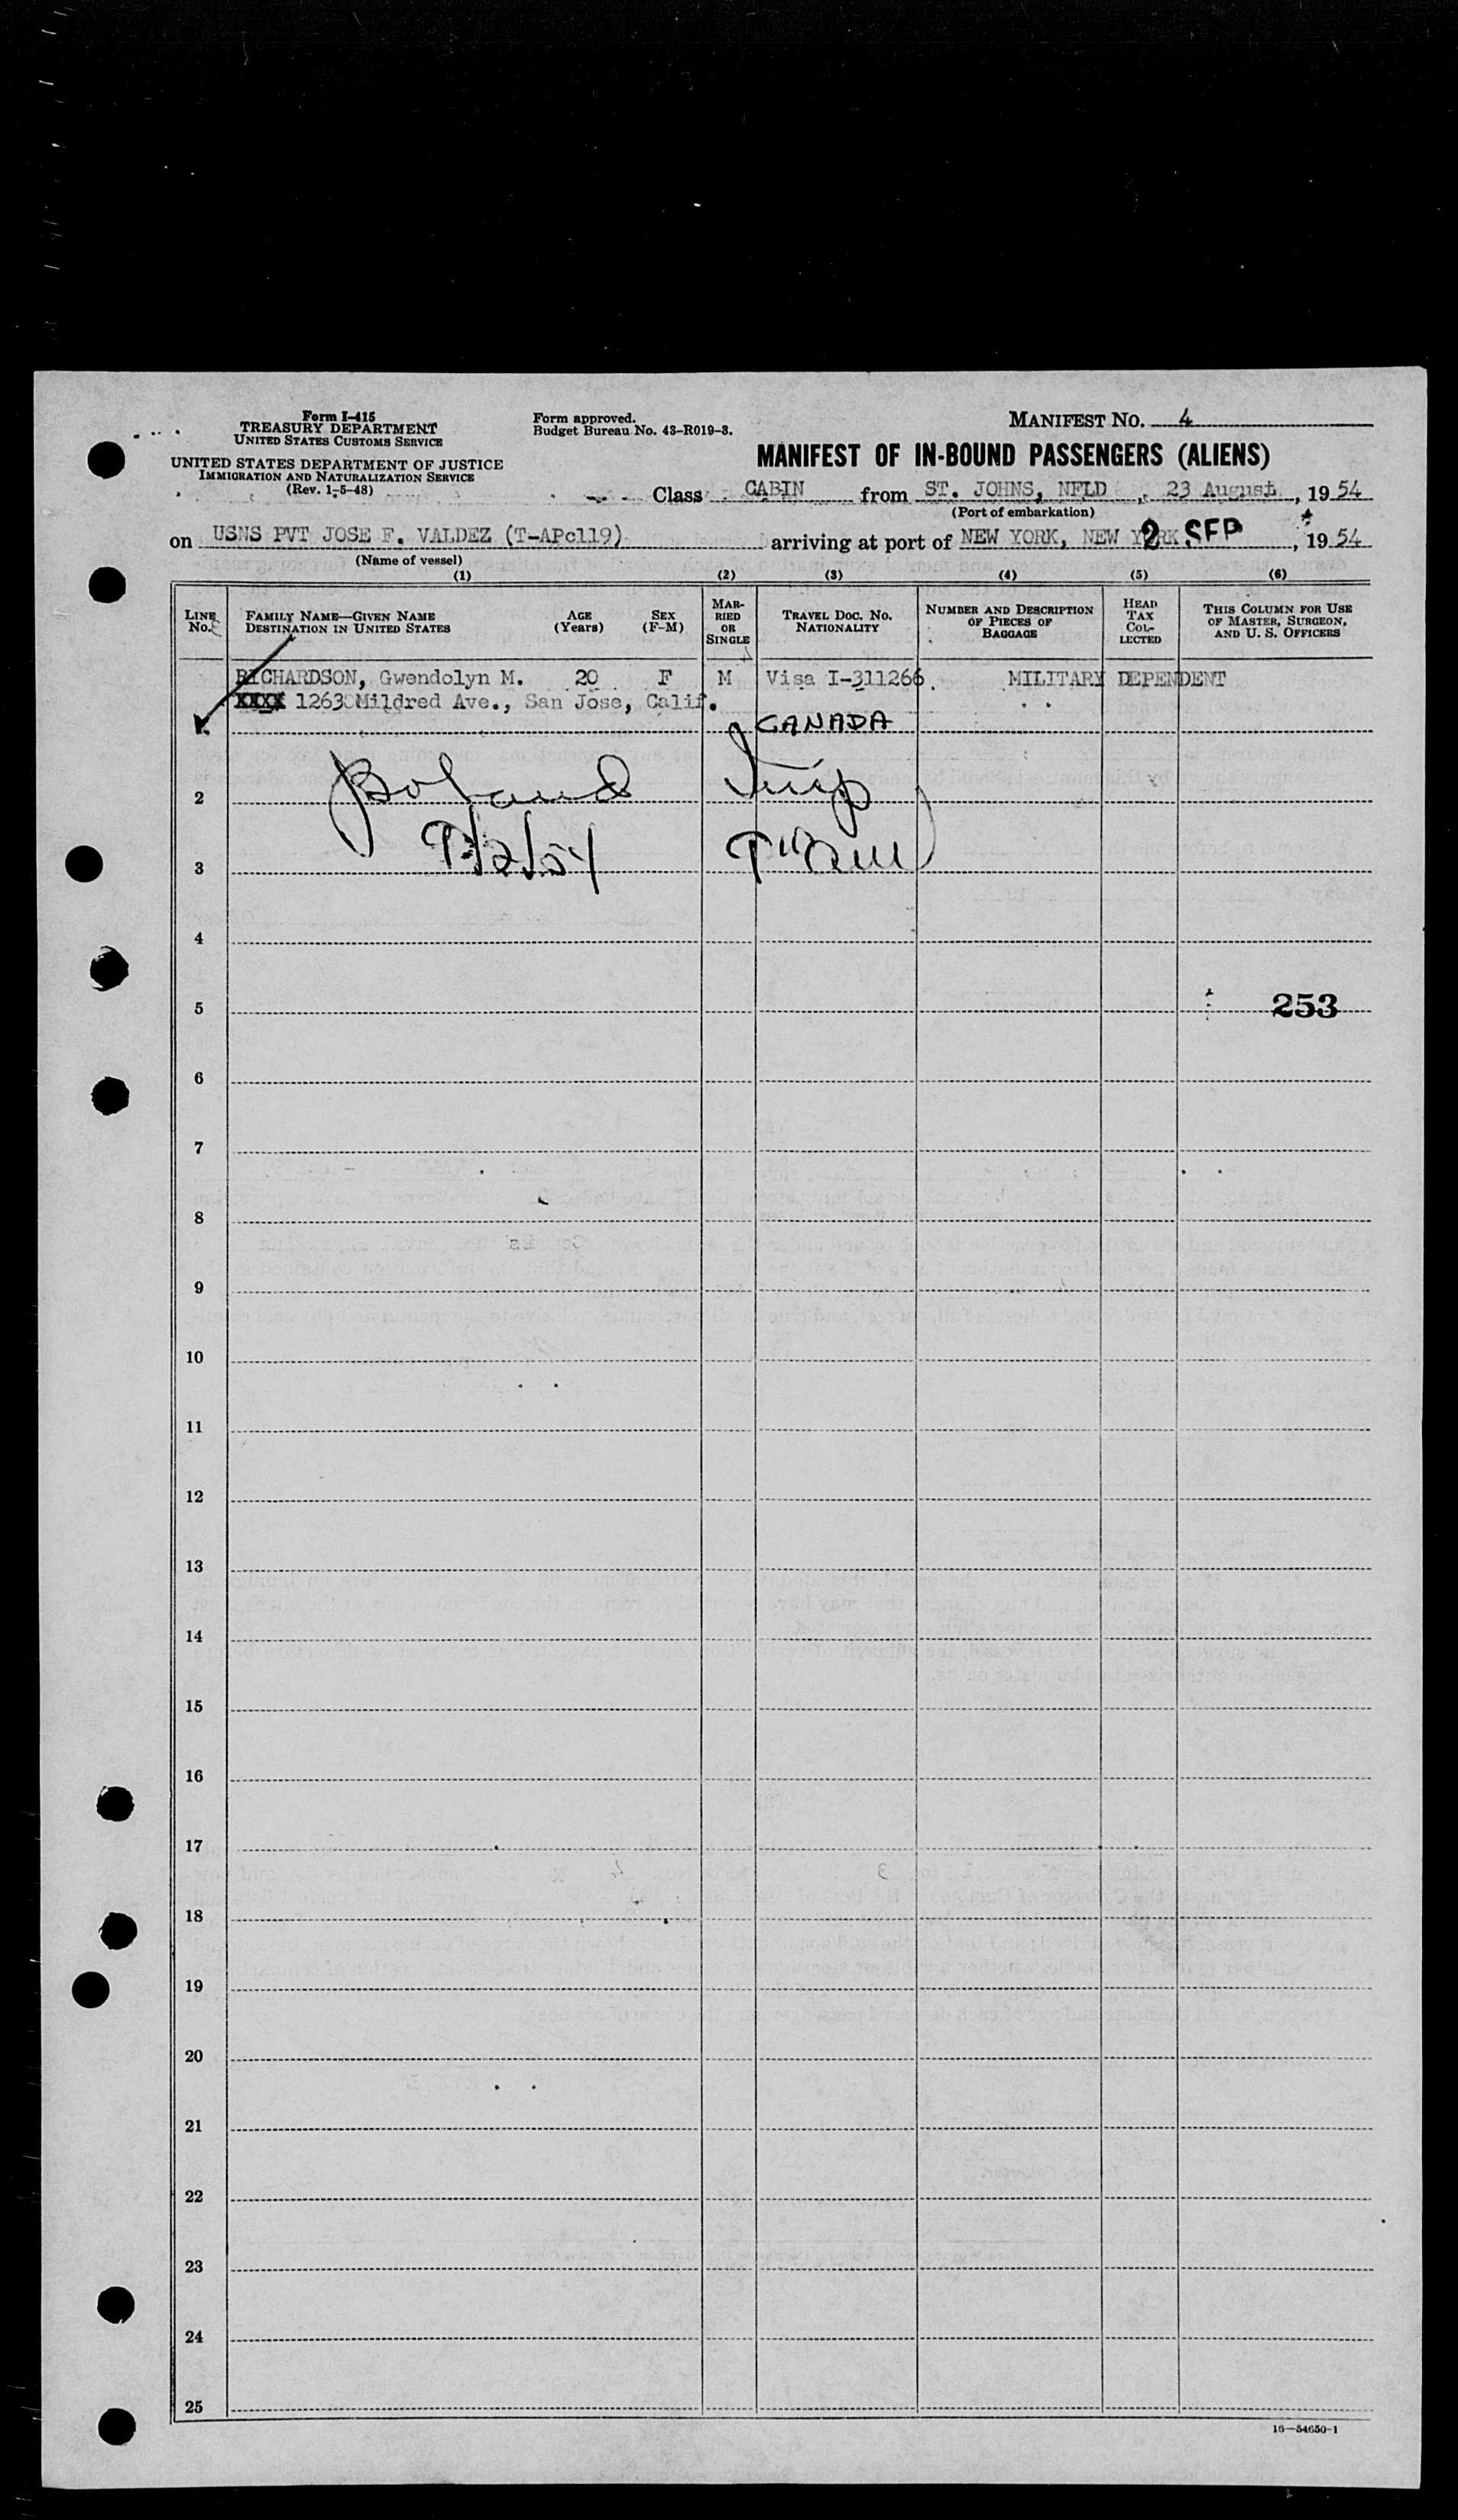 Form I-415
TREASURY DEPARTMENT
UNITED STATES CUSTOMS SERVICE
UNITED STATES DEPARTMENT OF JUSTICE
IMMIGRATION AND NATURALIZATION SERVICE
(Rev. 1-5-48)
Form approved.
Budget Bureau No. 43-R019-3.
MANIFEST NO. 4
MANIFEST OF IN-BOUND PASSENGERS (ALIENS)
Class CABIN from ST. JOHNS, NFLD, 23 August, 1954
(Port of embarkation)
on USNS PVT JOSE F. VALDEZ (T-APc119) arriving at port of NEW YORK, NEW YORK 2 SEP, 1954
(Name of vessel)
(1) (2) (3) (4) (5) (6)
LINE No. FAMILY NAME—GIVEN NAME DESTINATION IN UNITED STATES AGE (Years) SEX (F-M) MARRIED OR SINGLE TRAVEL DOC. NO. NATIONALITY NUMBER AND DESCRIPTION OF PIECES OF BAGGAGE HEAD TAX COLLECTED THIS COLUMN FOR USE OF MASTER, SURGEON, AND U. S. OFFICERS
RICHARDSON, Gwendolyn M. 20 F M Visa I-311266 MILITARY DEPENDENT
XXXX 1263 Mildred Ave., San Jose, Calif.
CANADA
Boland
2
9/2/54
3
4
5 253
6
7
8
9
10
11
12
13
14
15
16
17
18
19
20
21
22
23
24
25
16—54650-1